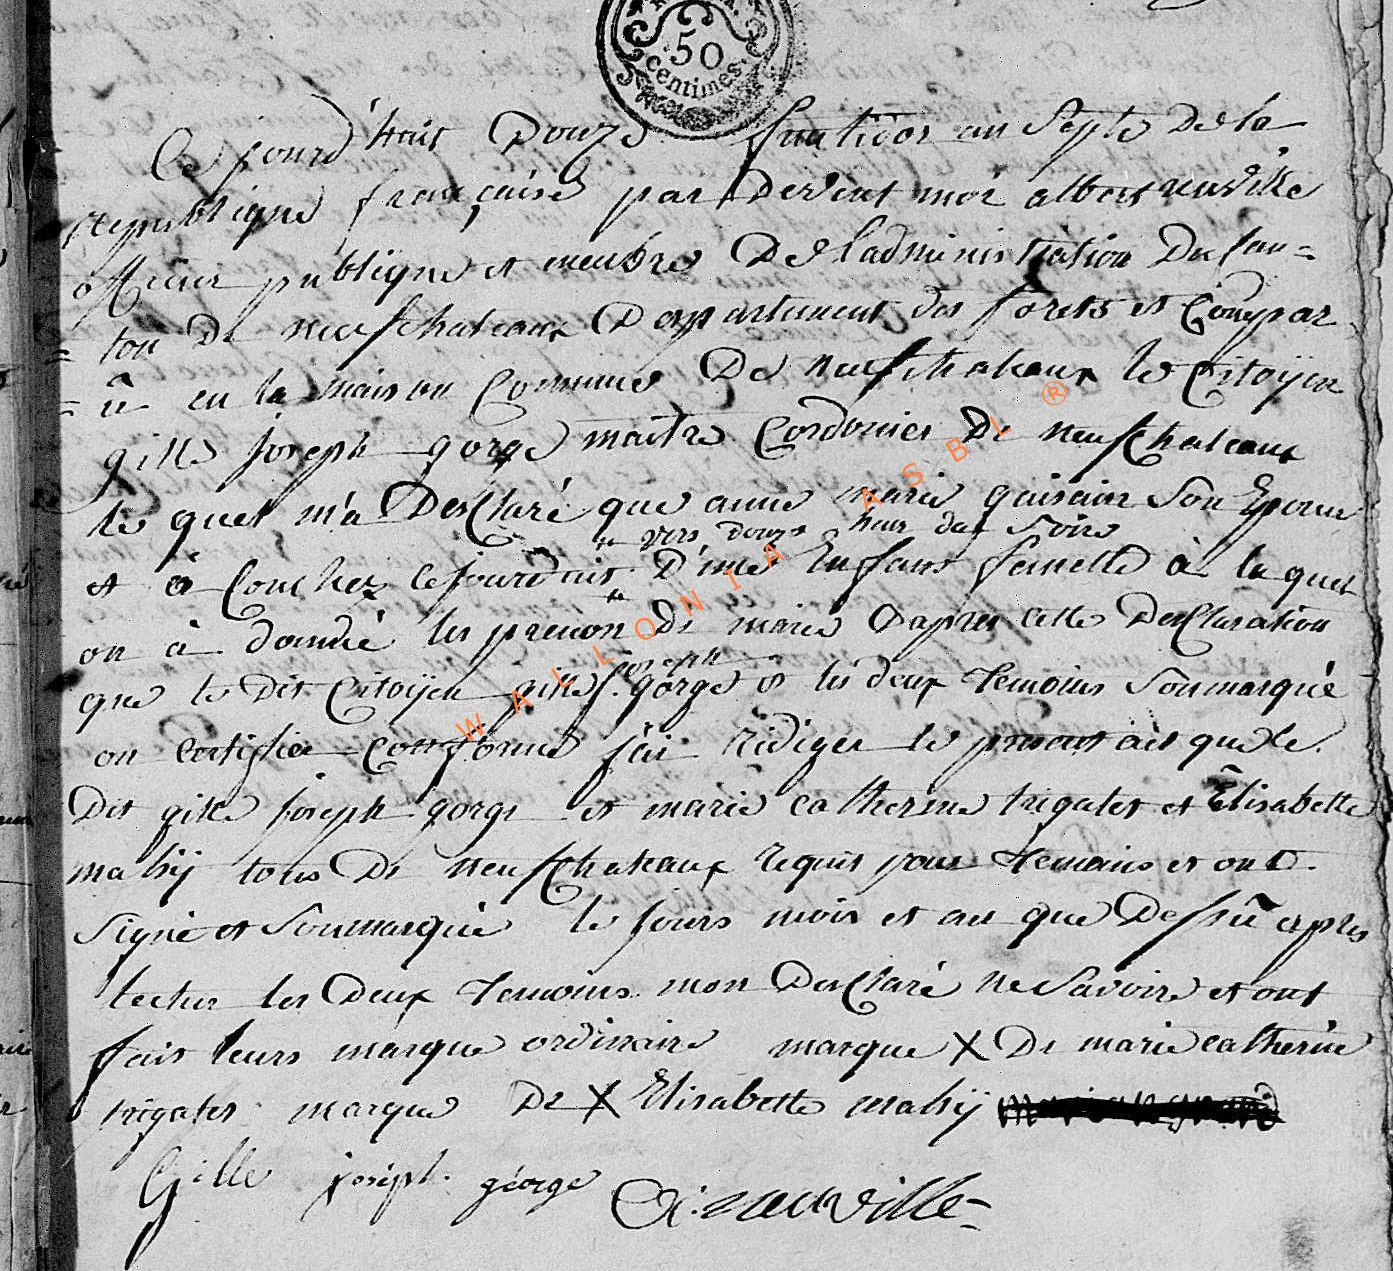 50
centimes.
Ce jourd'huit Douze fructidor an Septe De la
republique françaisé par Devent moi albert neuville
officier publique et membre De l'administration Du can=
=ton De neufchateaux Departement des forets et Compar
=û en la maison Commune De neufchateaux le Citoÿen
gille Joseph gorge maitre Cordonier De neufchateaux
le quel m'a Desclaré que anne marie guisain Son Epouse
vers douze heur du Soire
et à Couchez cejourduit D'une Enfant femelle à la quel
on à donné les prenon De marie D'apres cette Desclaration
Joseph
que le Dit Citoÿen gille J. gorge & les deux Temoins Soumarqué
on certifier conforme j'ai rediger le present act que le
Dit gille Joseph gorge et marie catherine trigalet et Elisabette
mahij tous De neufchateaux requit pour Temoins et ont
Signé et Soumarqué le jours mois et an que Dessû apres
lectur les Deux Temoins mon Desclaré ne Savoire et ont
fait leurs marque ordinaire marque X De marie catherine
trigalet marque De X Elisabette mahij
Gille joseph george A: neuville
WALLONIA ASBL ®